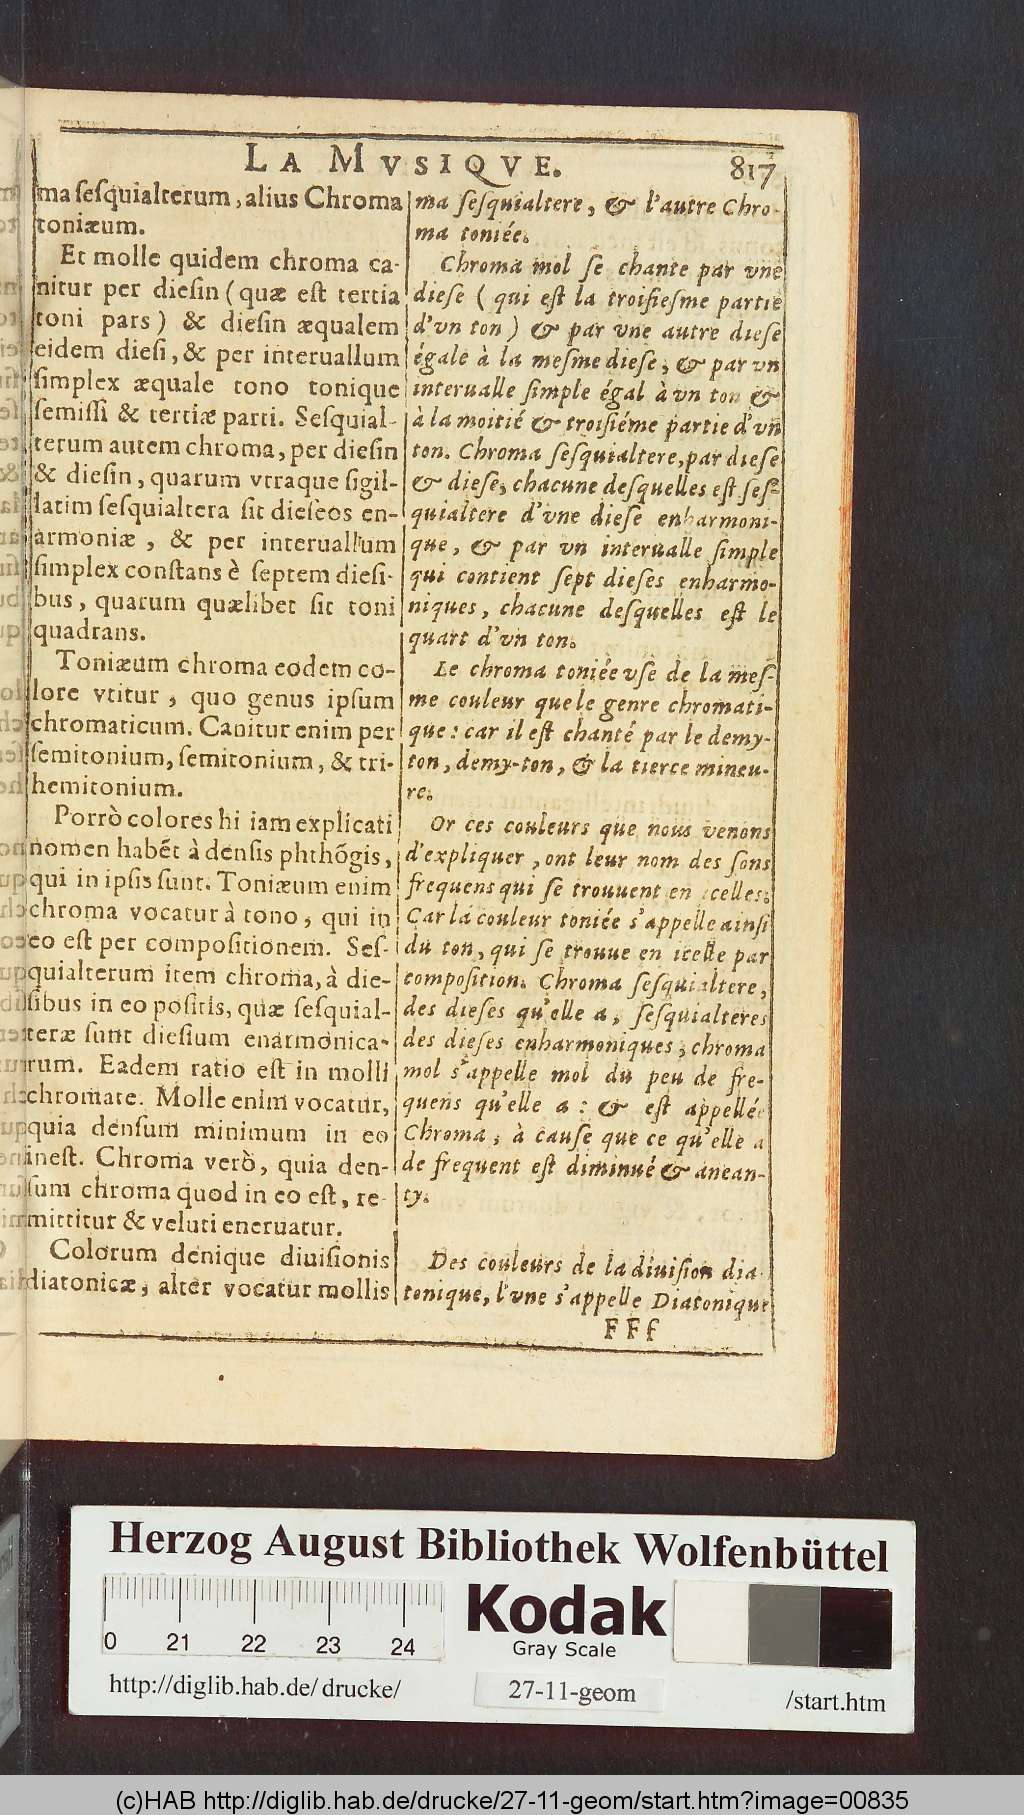 LA MVSIQVE.
817
ma sesquialterum, alius Chroma
toniæum.
Et molle quidem chroma ca-
nitur per diesin (quæ est tertia
toni pars) & diesin æqualem
eidem diesi, & per interuallum
simplex æquale tono tonique
semissi & tertiæ parti. Sesquial-
terum autem chroma, per diesin
& diesin, quarum vtraque sigil-
latim sesquialtera sit dieseos en-
armoniæ, & per interuallum
simplex constans è septem diesi-
bus, quarum quælibet sit toni
quadrans.
Toniæum chroma eodem co-
lore vtitur, quo genus ipsum
chromaticum. Canitur enim per
semitonium, semitonium, & tri-
hemitonium.
Porrò colores hi iam explicati
nomen habẽt à densis phthõgis,
qui in ipsis sunt. Toniæum enim
chroma vocatur à tono, qui in
eo est per compositionem. Ses-
quialterum item chroma, à die-
sibus in eo positis, quæ sesquial-
teræ sunt diesium enarmonica-
rum. Eadem ratio est in molli
chromate. Molle enim vocatur,
quia densum minimum in eo
inest. Chroma verò, quia den-
sum chroma quod in eo est, re-
mittitur & veluti eneruatur.
Colorum denique diuisionis
diatonicæ, alter vocatur mollis
ma sesquialtere, & l'autre Chro-
ma toniée.
Chroma mol se chante par vne
diese (qui est la troisiesme partie
d'vn ton) & par vne autre diese
égale à la mesme diese, & par vn
interualle simple égal à vn ton &
à la moitié & troisiéme partie d'vn
ton. Chroma sesquialtere, par diese
& diese, chacune desquelles est ses-
quialtere d'vne diese enharmoni-
que, & par vn interualle simple
qui contient sept dieses enharmo-
niques, chacune desquelles est le
quart d'vn ton.
Le chroma toniée vse de la mes-
me couleur que le genre chromati-
que: car il est chanté par le demy-
ton, demy-ton, & la tierce mineu-
re.
Or ces couleurs que nous venons
d'expliquer, ont leur nom des sons
frequens qui se trouuent en icelles.
Car la couleur toniée s'appelle ainsi
du ton, qui se trouue en icelle par
composition. Chroma sesquialtere,
des dieses qu'elle a, sesquialteres
des dieses enharmoniques, chroma
mol s'appelle mol du peu de fre-
quens qu'elle a: & est appellée
Chroma, à cause que ce qu'elle a
de frequent est diminué & anean-
ty.
Des couleurs de la diuision dia-
tonique, l'vne s'appelle Diatonique
FFf
Herzog August Bibliothek Wolfenbüttel
0 21 22 23 24
Kodak
Gray Scale
http://diglib.hab.de/drucke/
27-11-geom
/start.htm
(c)HAB http://diglib.hab.de/drucke/27-11-geom/start.htm?image=00835